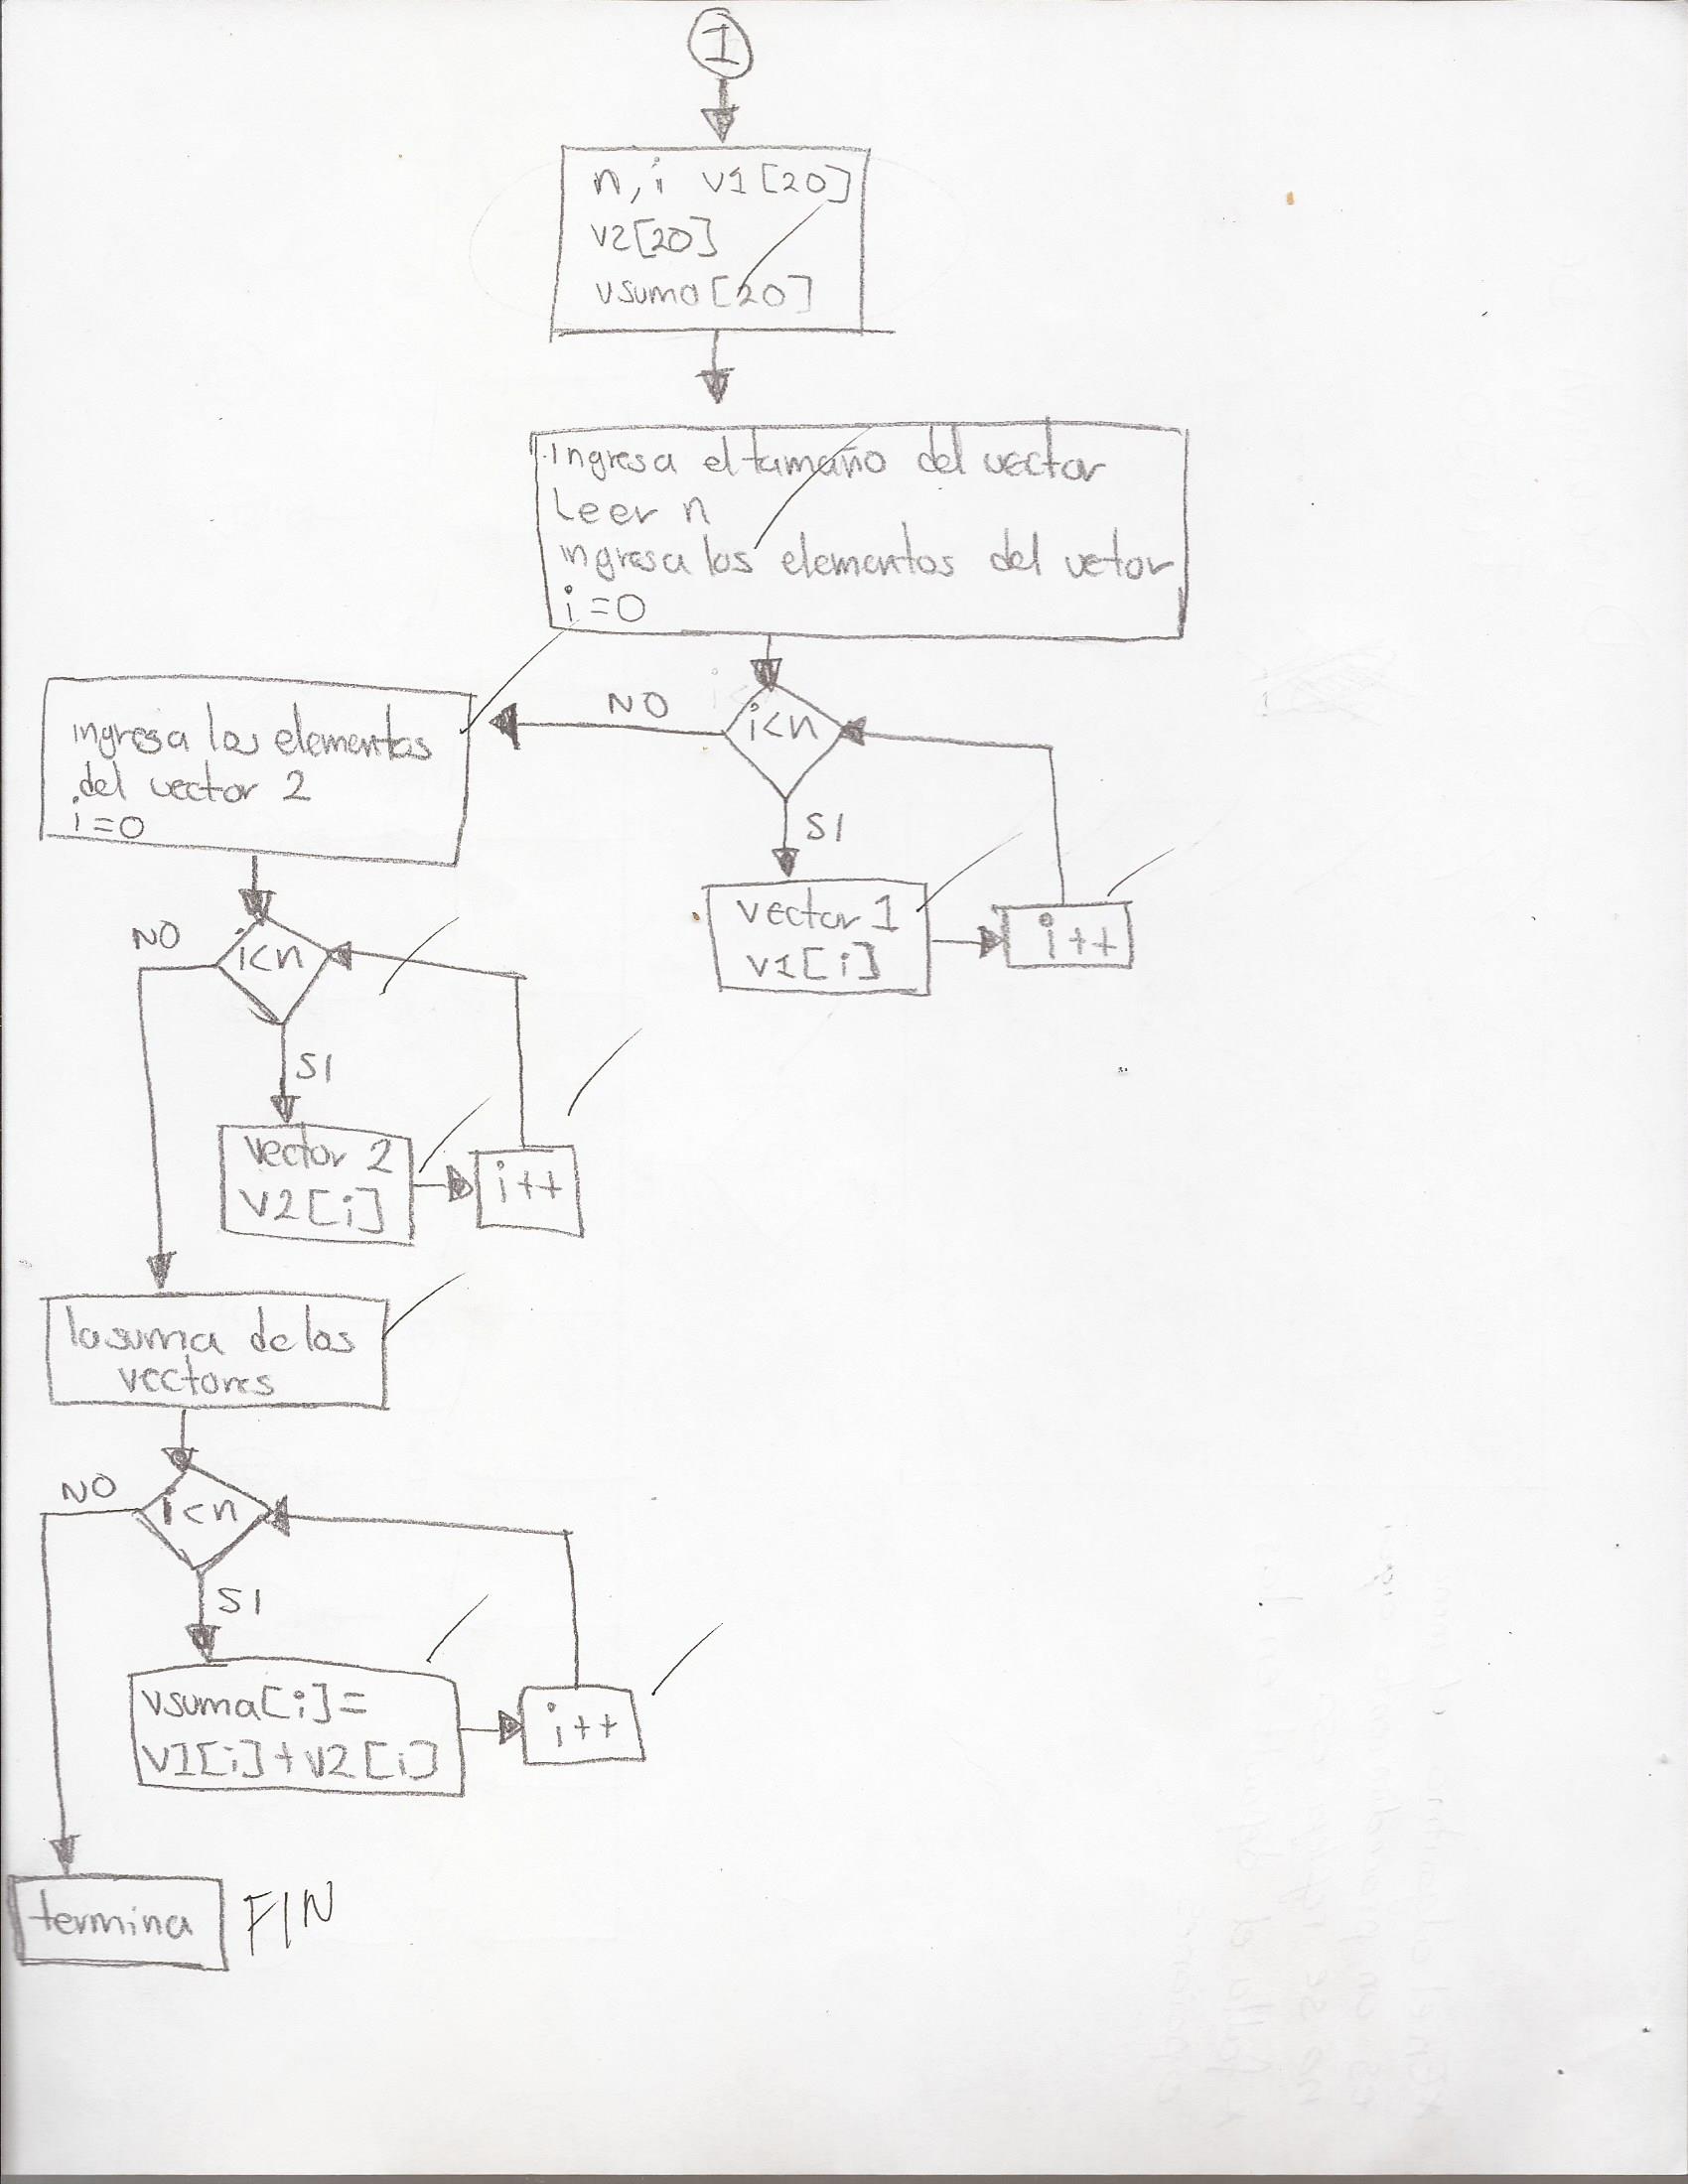 1
n, i v1[20]
v2[20]
vsuma[20]
ingresa el tamaño del vector
Leer n
ingresa los elementos del vetor
i=0
i<n
NO
SI
vector 1
v1[i]
i++
ingresa los elementos
del vector 2
i=0
i<n
NO
SI
vector 2
v2[i]
i++
la suma de los
vectores
i<n
NO
SI
vsuma[i]=
v1[i]+v2[i]
i++
termina
FIN